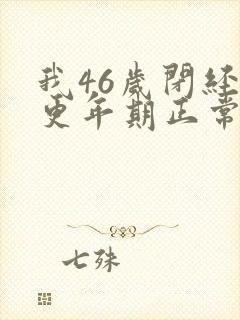 我46歲閉經
更年期正常
七殊